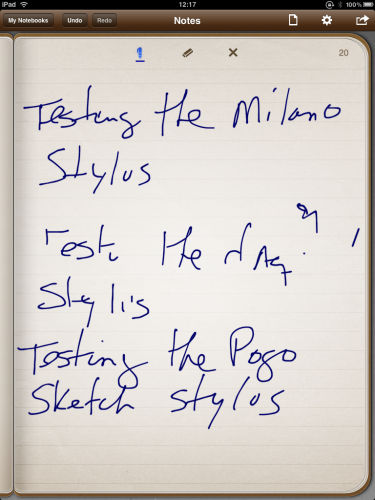 iPad 12:17 100%
My Notebooks Undo Redo Notes
20
Testing the Milano
Stylus
Test. the
Stylis
Testing the Pogo
Sketch stylus